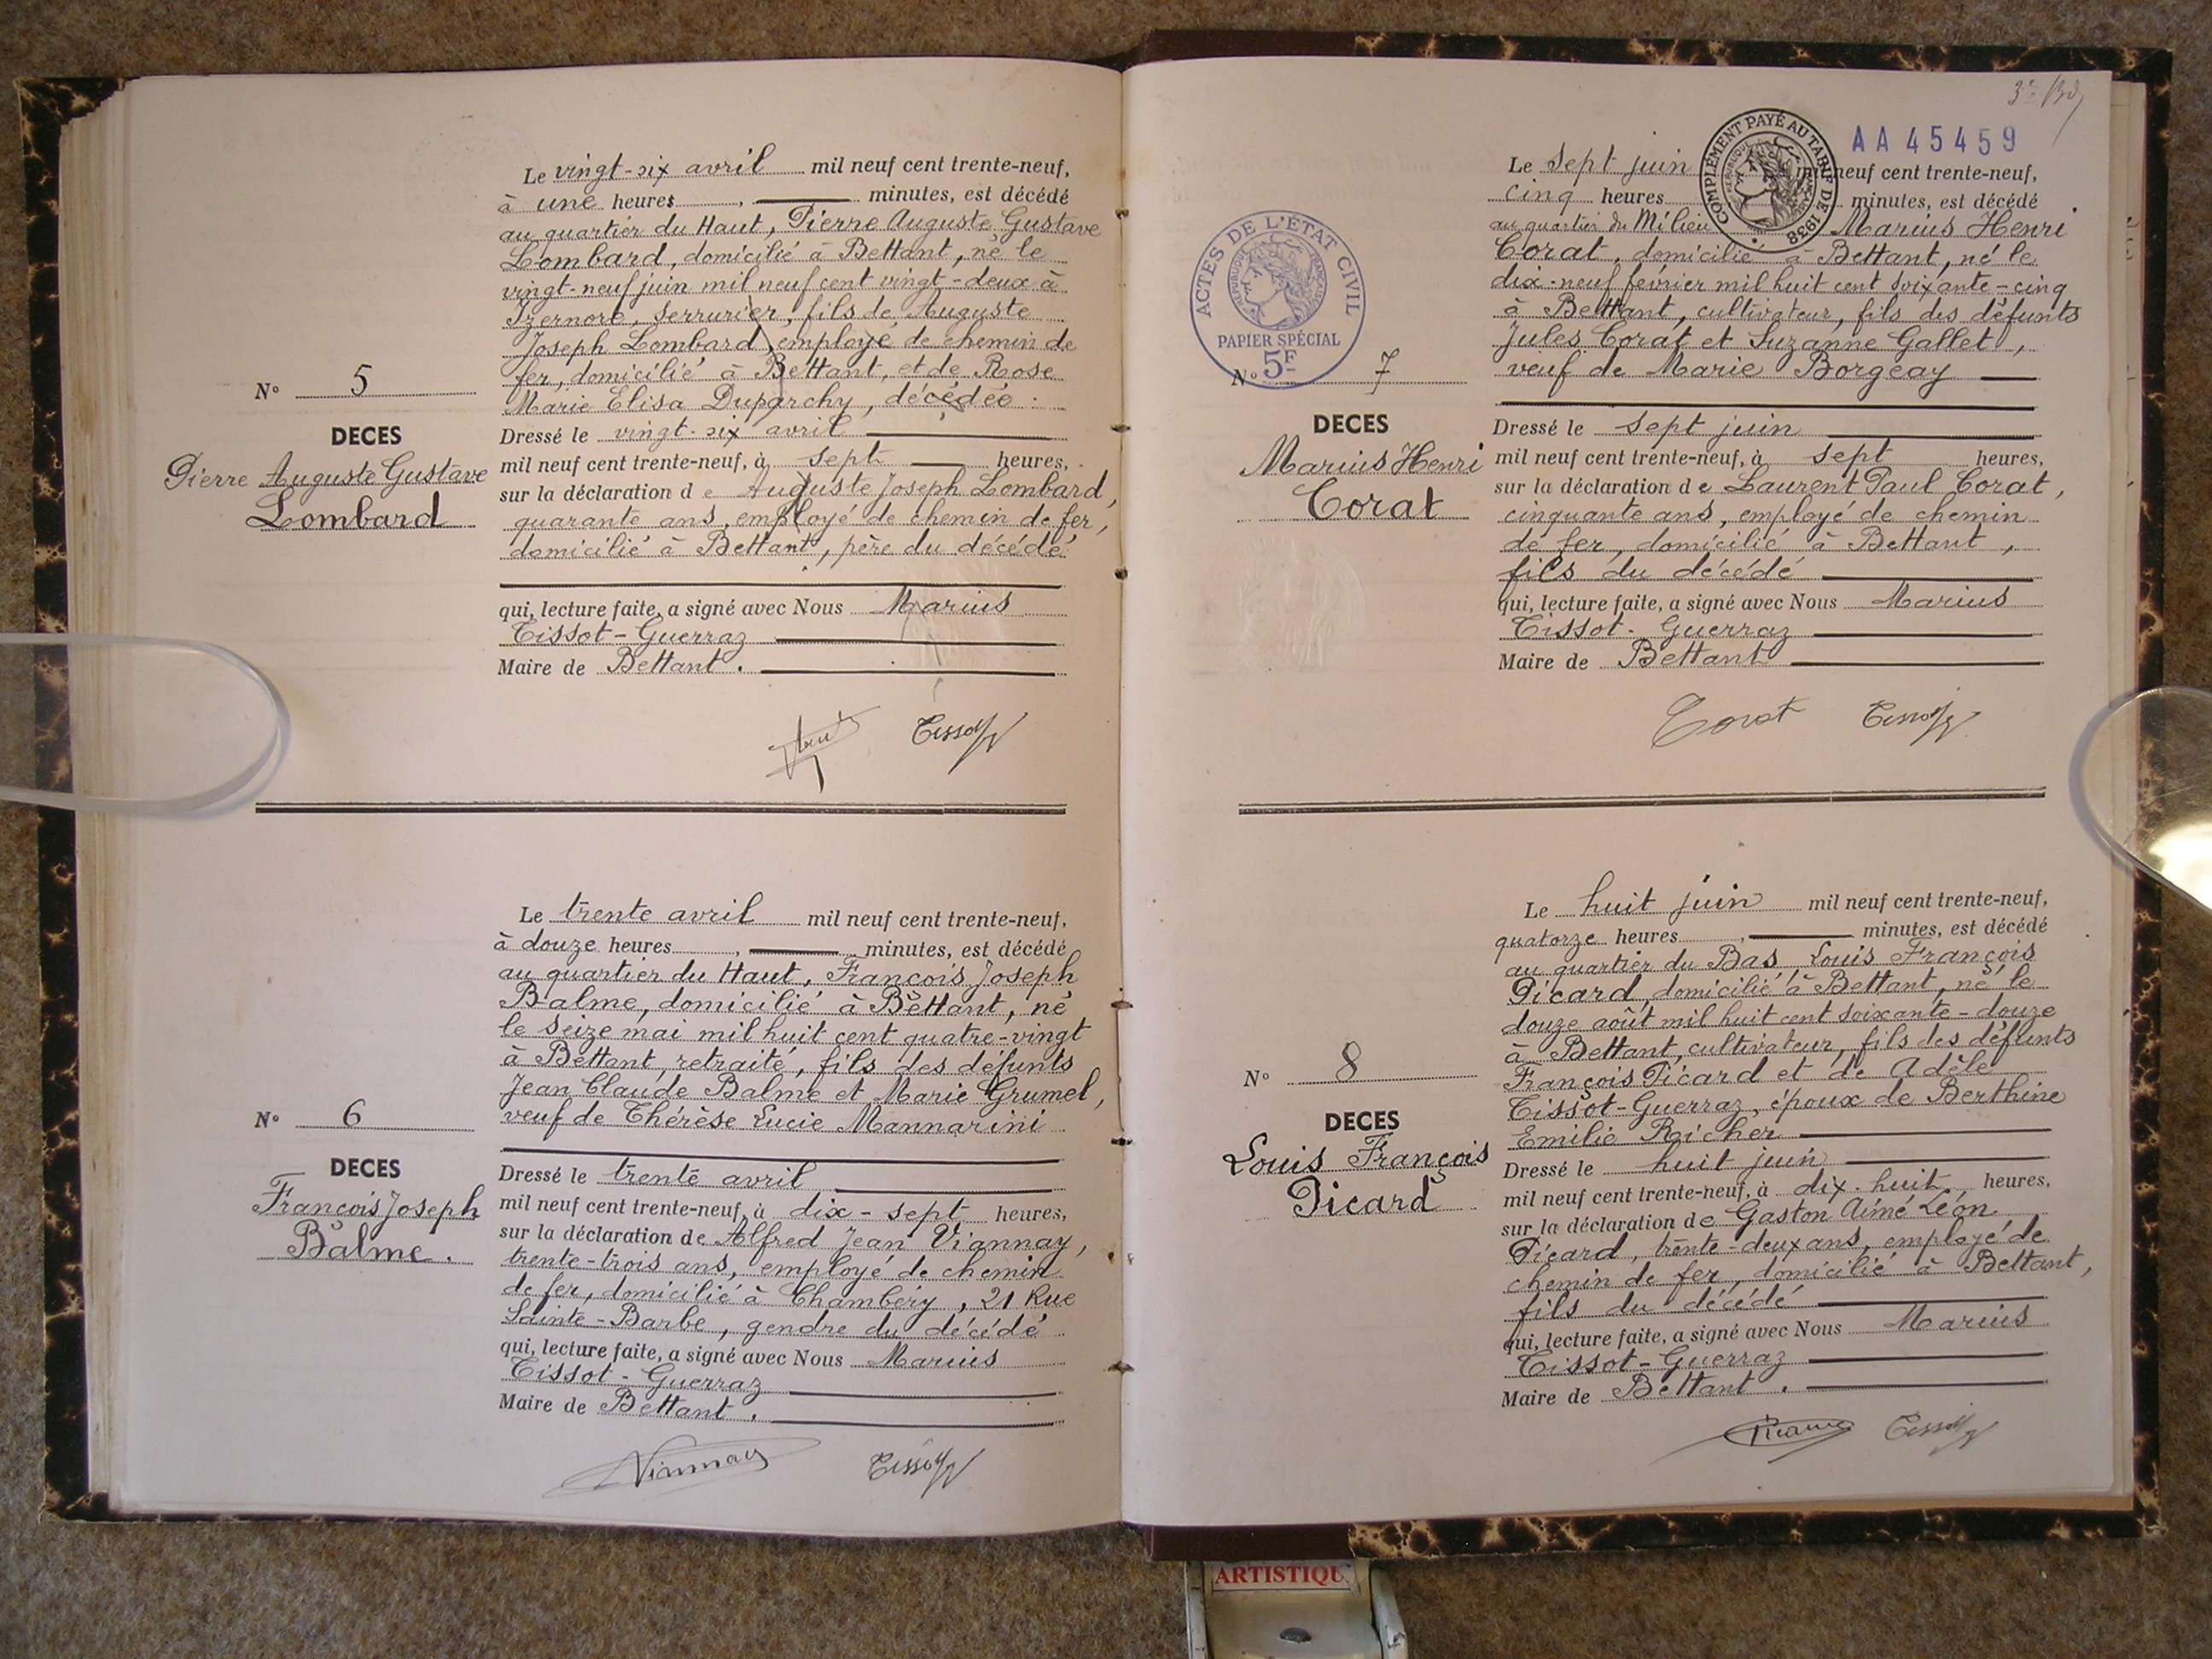 Le vingt-six avril mil neuf cent trente-neuf,
à une heures, minutes, est décédé
au quartier du Haut, Pierre Auguste Gustave
Lombard, domicilié à Bettant, né le
vingt-neuf juin mil neuf cent vingt-deux à
Izernore, serrurier, fils de Auguste
Joseph Lombard, employé de chemin de
fer, domicilié à Bettant, et de Rose
Marie Elisa Duparchy, décédée.
N° 5
DECES
Pierre Auguste Gustave
Lombard
Dressé le vingt-six avril
mil neuf cent trente-neuf, à sept heures,
sur la déclaration de Auguste Joseph Lombard,
quarante ans, employé de chemin de fer,
domicilié à Bettant, père du décédé.
qui, lecture faite, a signé avec Nous Marius
Tissot-Guerraz
Maire de Bettant.
Le trente avril mil neuf cent trente-neuf,
à douze heures, minutes, est décédé
au quartier du Haut, François Joseph
Balme, domicilié à Bettant, né
le seize mai mil huit cent quatre-vingt
à Bettant, retraité, fils des défunts
Jean Claude Balme et Marie Grumel,
veuf de Thérèse Lucie Mannarini
N° 6
DECES
François Joseph
Balme.
Dressé le trente avril
mil neuf cent trente-neuf, à dix-sept heures,
sur la déclaration de Alfred Jean Viannay,
trente-trois ans, employé de chemin
de fer, domicilié à Chambéry, 21 Rue
Sainte-Barbe, gendre du décédé
qui, lecture faite, a signé avec Nous Marius
Tissot-Guerraz
Maire de Bettant.
Viannay
AA 45459
COMPLÉMENT PAYÉ AU TARIF DE 1938
ACTES DE L'ÉTAT CIVIL
RÉPUBLIQUE FRANÇAISE
PAPIER SPÉCIAL
5F
Le sept juin mil neuf cent trente-neuf,
cinq heures minutes, est décédé
au quartier du Milieu Marius Henri
Corat, domicilié à Bettant, né le
dix-neuf février mil huit cent soixante-cinq
à Bettant, cultivateur, fils des défunts
Jules Corat et Suzanne Gallet,
veuf de Marie Borgeay
N° 7
DECES
Marius Henri
Corat
Dressé le sept juin
mil neuf cent trente-neuf, à sept heures,
sur la déclaration de Laurent Paul Corat,
cinquante ans, employé de chemin
de fer, domicilié à Bettant,
fils du décédé
qui, lecture faite, a signé avec Nous Marius
Tissot-Guerraz
Maire de Bettant
Corat
Le huit juin mil neuf cent trente-neuf,
quatorze heures, minutes, est décédé
au quartier du Bas Louis François
Picard, domicilié à Bettant, né le
douze août mil huit cent soixante-douze
à Bettant, cultivateur, fils des défunts
François Picard et de Adèle
Tissot-Guerraz, époux de Berthine
Emilie Richer
N° 8
DECES
Louis François
Picard
Dressé le huit juin
mil neuf cent trente-neuf, à dix-huit heures,
sur la déclaration de Gaston Aimé Léon
Picard, trente-deux ans, employé de
chemin de fer, domicilié à Bettant,
fils du décédé
qui, lecture faite, a signé avec Nous Marius
Tissot-Guerraz
Maire de Bettant.
ARTISTIQU